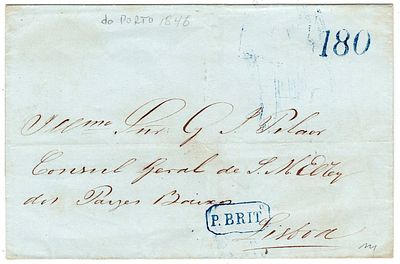 do PORTO 1846
180
Illmo Snr G J Pilaer
Consul Geral de S. M. ElRey
dos Payzes Baixos
P. BRIT.
Lisboa